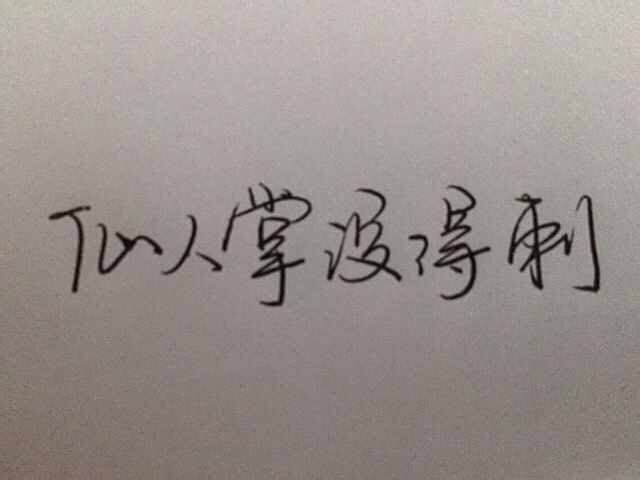 仙人掌没得刺